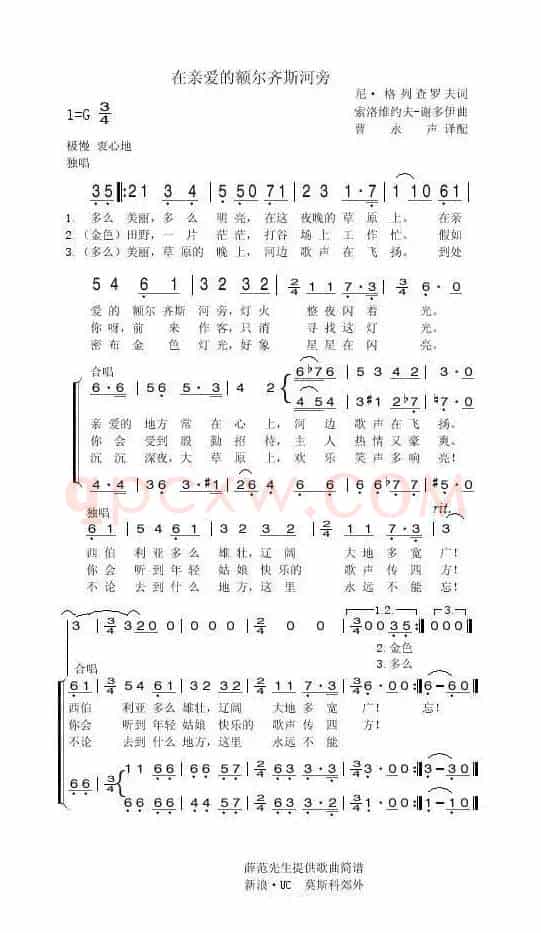 在亲爱的额尔齐斯河旁
尼·格列查罗夫词
1=G 3/4
索洛维约夫-谢多伊曲
曹永声译配
极慢 衷心地
独唱
35‖:21 3 4 | 5 550571 | 2 3 4 3 2 | 1·7 | 1 1061 |
1. 多么 美丽,多么 明亮,在这 夜晚的草原上。 在亲
2.(金色)田野,一片 茫茫,打谷 场上工作忙。 假如
3.(多么)美丽,草原的 晚上,河边 歌声在飞扬。到处
5 4 6 1 | 3232 32 | 2/4 11 7·3 | 3/4 6·0
爱的 额尔齐斯 河旁,灯火 整夜闪着 光。
你呀,前来作客,只消 寻找这灯 光。
密布金色灯光,好象 星星在闪 亮。
合唱
6·6 | 56 5·3 | 4 2 6♭76 | 5342 | 3·0
4 54 3♯1 2♭7 ♮7·0
亲爱的地方常在心上,河边歌声在飞扬。
你会受到殷勤招待,主人热情又豪爽。
沉沉深夜,大草原上,欢乐笑声多响亮!
4·4 | 36 3·♯1 | 26 4 6 6 | 6 6 ♭7 7 | ♯5·0
qpcxw.com
rit.
独唱
61 | 54 61 | 32 32 | 2/4 11 7·3 | 3/4 3
西伯 利亚多么 雄壮,辽阔 大地多宽广!
你会 听到年轻 姑娘快乐的 歌声传四方!
不论 去到什么 地方,这里 永远不能忘!
3 | 3/4 3 3200 | 0 0 0 | 0 0 0 | 2/4 0 0 | 3/4 30035:‖300‖
1.2.
3.
2.金色
3.多么
合唱
61 | 54 61 | 3232 32 | 2/4 11 7·3 | 3/4 6-00:‖6-60‖
西伯 利亚多么雄壮,辽阔 大地多宽 广! 忘!
你会 听到年轻姑娘快乐的 歌声传四 方!
不论 去到什么地方,这里 永远不能
66 | 3/4 11 66 | 66 57 | 2/4 66 3·3 | 3/4 3·3 3 002:‖6-60‖
66 66 | 66 57 | 2/4 66 3·3 | 3/4 6·3 2 100:‖6-60‖
薛范先生提供歌曲简谱
新浪·UC 莫斯科郊外